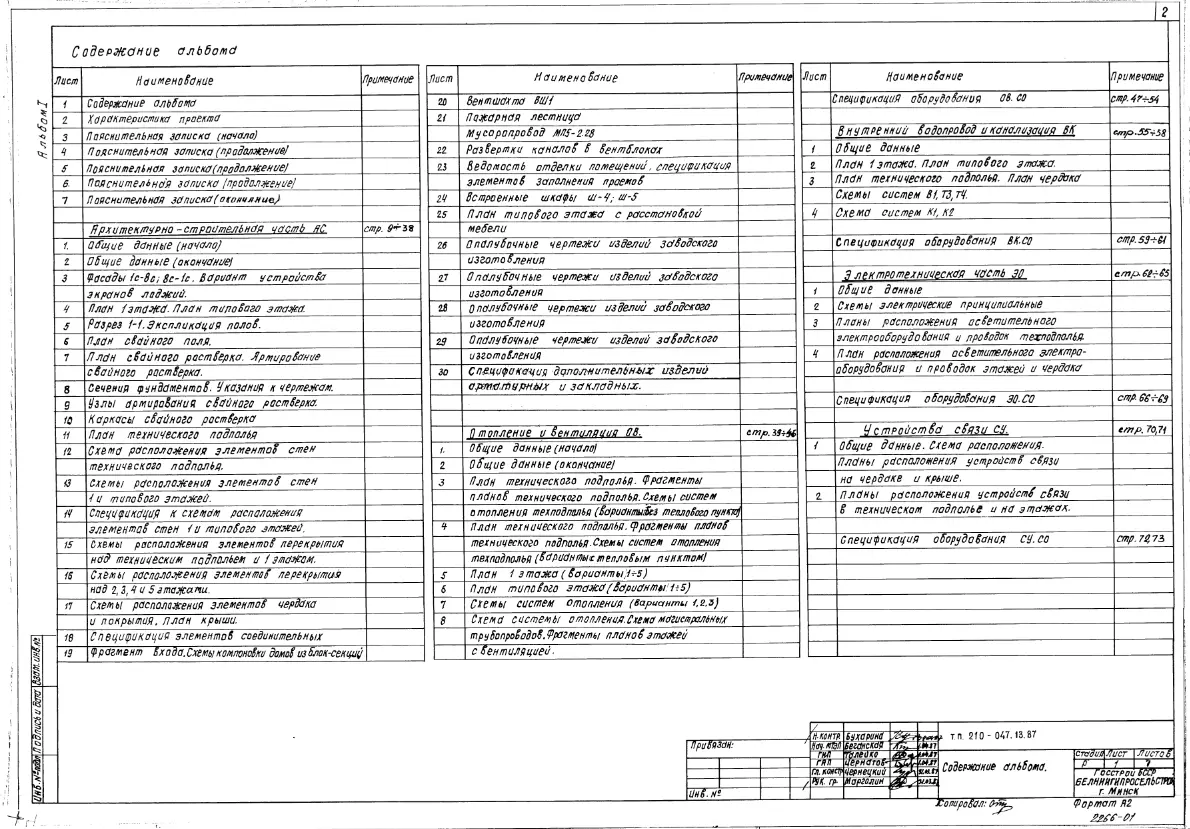 2
Содержание альбома
Альбом I
Лист Наименование Примечание
1 Содержание альбома
2 Характеристика проекта
3 Пояснительная записка (начало)
4 Пояснительная записка (продолжение)
5 Пояснительная записка (продолжение)
6 Пояснительная записка (продолжение)
7 Пояснительная записка (окончание)
Архитектурно-строительная часть АС. стр. 9÷38
1. Общие данные (начало)
2 Общие данные (окончание)
3 Фасады 1с-8с; 8с-1с. Вариант устройства
экранов лоджий.
4 План 1 этажа. План типового этажа.
5 Разрез 1-1. Экспликация полов.
6 План свайного поля.
7 План свайного ростверка. Армирование
свайного ростверка.
8 Сечения фундаментов. Указания к чертежам.
9 Узлы армирования свайного ростверка.
10 Каркасы свайного ростверка
11 План технического подполья
12 Схема расположения элементов стен
технического подполья.
13 Схемы расположения элементов стен
1 и типового этажей.
14 Спецификация к схемам расположения
элементов стен 1 и типового этажей.
15 Схемы расположения элементов перекрытия
над техническим подпольем и 1 этажом.
16 Схемы расположения элементов перекрытия
над 2, 3, 4 и 5 этажами.
17 Схемы расположения элементов чердака
и покрытия. План крыши.
18 Спецификация элементов соединительных
19 Фрагмент входа. Схемы компоновки домов из блок-секций
Лист Наименование Примечание
20 Вентшахта ВШ1
21 Пожарная лестница
Мусоропровод МП5-2.28
22 Развертки каналов в вентблоках
23 Ведомость отделки помещений, спецификация
элементов заполнения проемов
24 Встроенные шкафы Ш-4; Ш-5
25 План типового этажа с расстановкой
мебели
26 Опалубочные чертежи изделий заводского
изготовления
27 Опалубочные чертежи изделий заводского
изготовления
28 Опалубочные чертежи изделий заводского
изготовления
29 Опалубочные чертежи изделий заводского
изготовления
30 Спецификация дополнительных изделий
арматурных и закладных.
Отопление и вентиляция ОВ. стр. 39÷46
1. Общие данные (начало)
2 Общие данные (окончание)
3 План технического подполья. Фрагменты
планов технического подполья. Схемы систем
отопления техподполья (варианты без теплового пункта)
4 План технического подполья. Фрагменты планов
технического подполья. Схемы систем отопления
техподполья (варианты с тепловым пунктом)
5 План 1 этажа (варианты 1÷5)
6 План типового этажа (варианты 1÷5)
7 Схемы систем отопления (варианты 1, 2, 3)
8 Схема системы отопления. Схема магистральных
трубопроводов. Фрагменты планов этажей
с вентиляцией.
Лист Наименование Примечание
Спецификация оборудования ОВ.СО стр. 47÷54
Внутренний водопровод и канализация ВК стр. 55÷58
1 Общие данные
2 План 1 этажа. План типового этажа.
3 План технического подполья. План чердака
Схемы систем В1, Т3, Т4.
4 Схема систем К1, К2
Спецификация оборудования ВК.СО стр. 59÷61
Электротехническая часть ЭО. стр. 62÷65
1 Общие данные
2 Схемы электрические принципиальные
3 Планы расположения осветительного
электрооборудования и проводок техподполья.
4 План расположения осветительного электро-
оборудования и проводок этажей и чердака
Спецификация оборудования ЭО.СО стр. 66÷69
Устройства связи СУ. стр. 70,71
1 Общие данные. Схема расположения.
Планы расположения устройств связи
на чердаке и крыше.
2 Планы расположения устройств связи
в техническом подполье и на этажах.
Спецификация оборудования СУ.СО стр. 72,73
Инв. № подл. Подпись и дата Взам. инв. №
Привязан:
Инв. №
Н. контр. Бухарина
Нач. МТЭП Беганская
ГИП Талейко
ГАП Чернатов
Гл. констр. Чернецкий
Рук. гр. Марголин
т.п. 210-047.13.87
Содержание альбома.
Стадия Лист Листов
Р 1 7
Госстрой БССР
БЕЛНИИГИПРОСЕЛЬСТРОЙ
г. Минск
Копировал:
Формат А2
2266-01